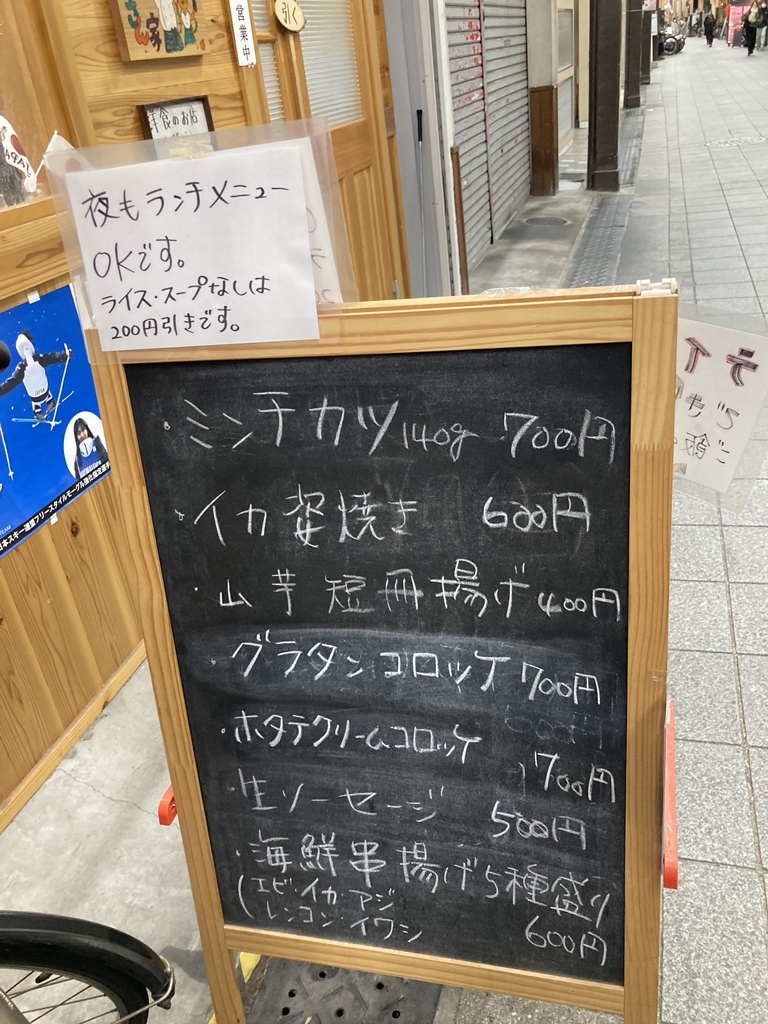 営業中
引く
洋食のお店
夜もランチメニュー
OKです。
ライス・スープなしは
200円引きです。
・ミンチカツ140g 700円
・イカ姿焼き 600円
・山芋短冊揚げ 400円
・グラタンコロッケ 700円
・ホタテクリームコロッケ
700円
・生ソーセージ 500円
・海鮮串揚げ5種盛り
(エビ・イカ・アジ
レンコン・イワシ
600円
日本スキー連盟フリースタイルモーグル強化指定選手